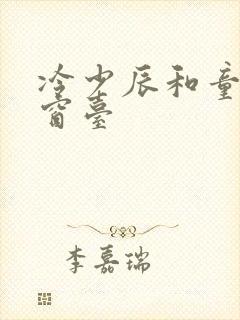 冷少辰和童
窗臺
李嘉瑞